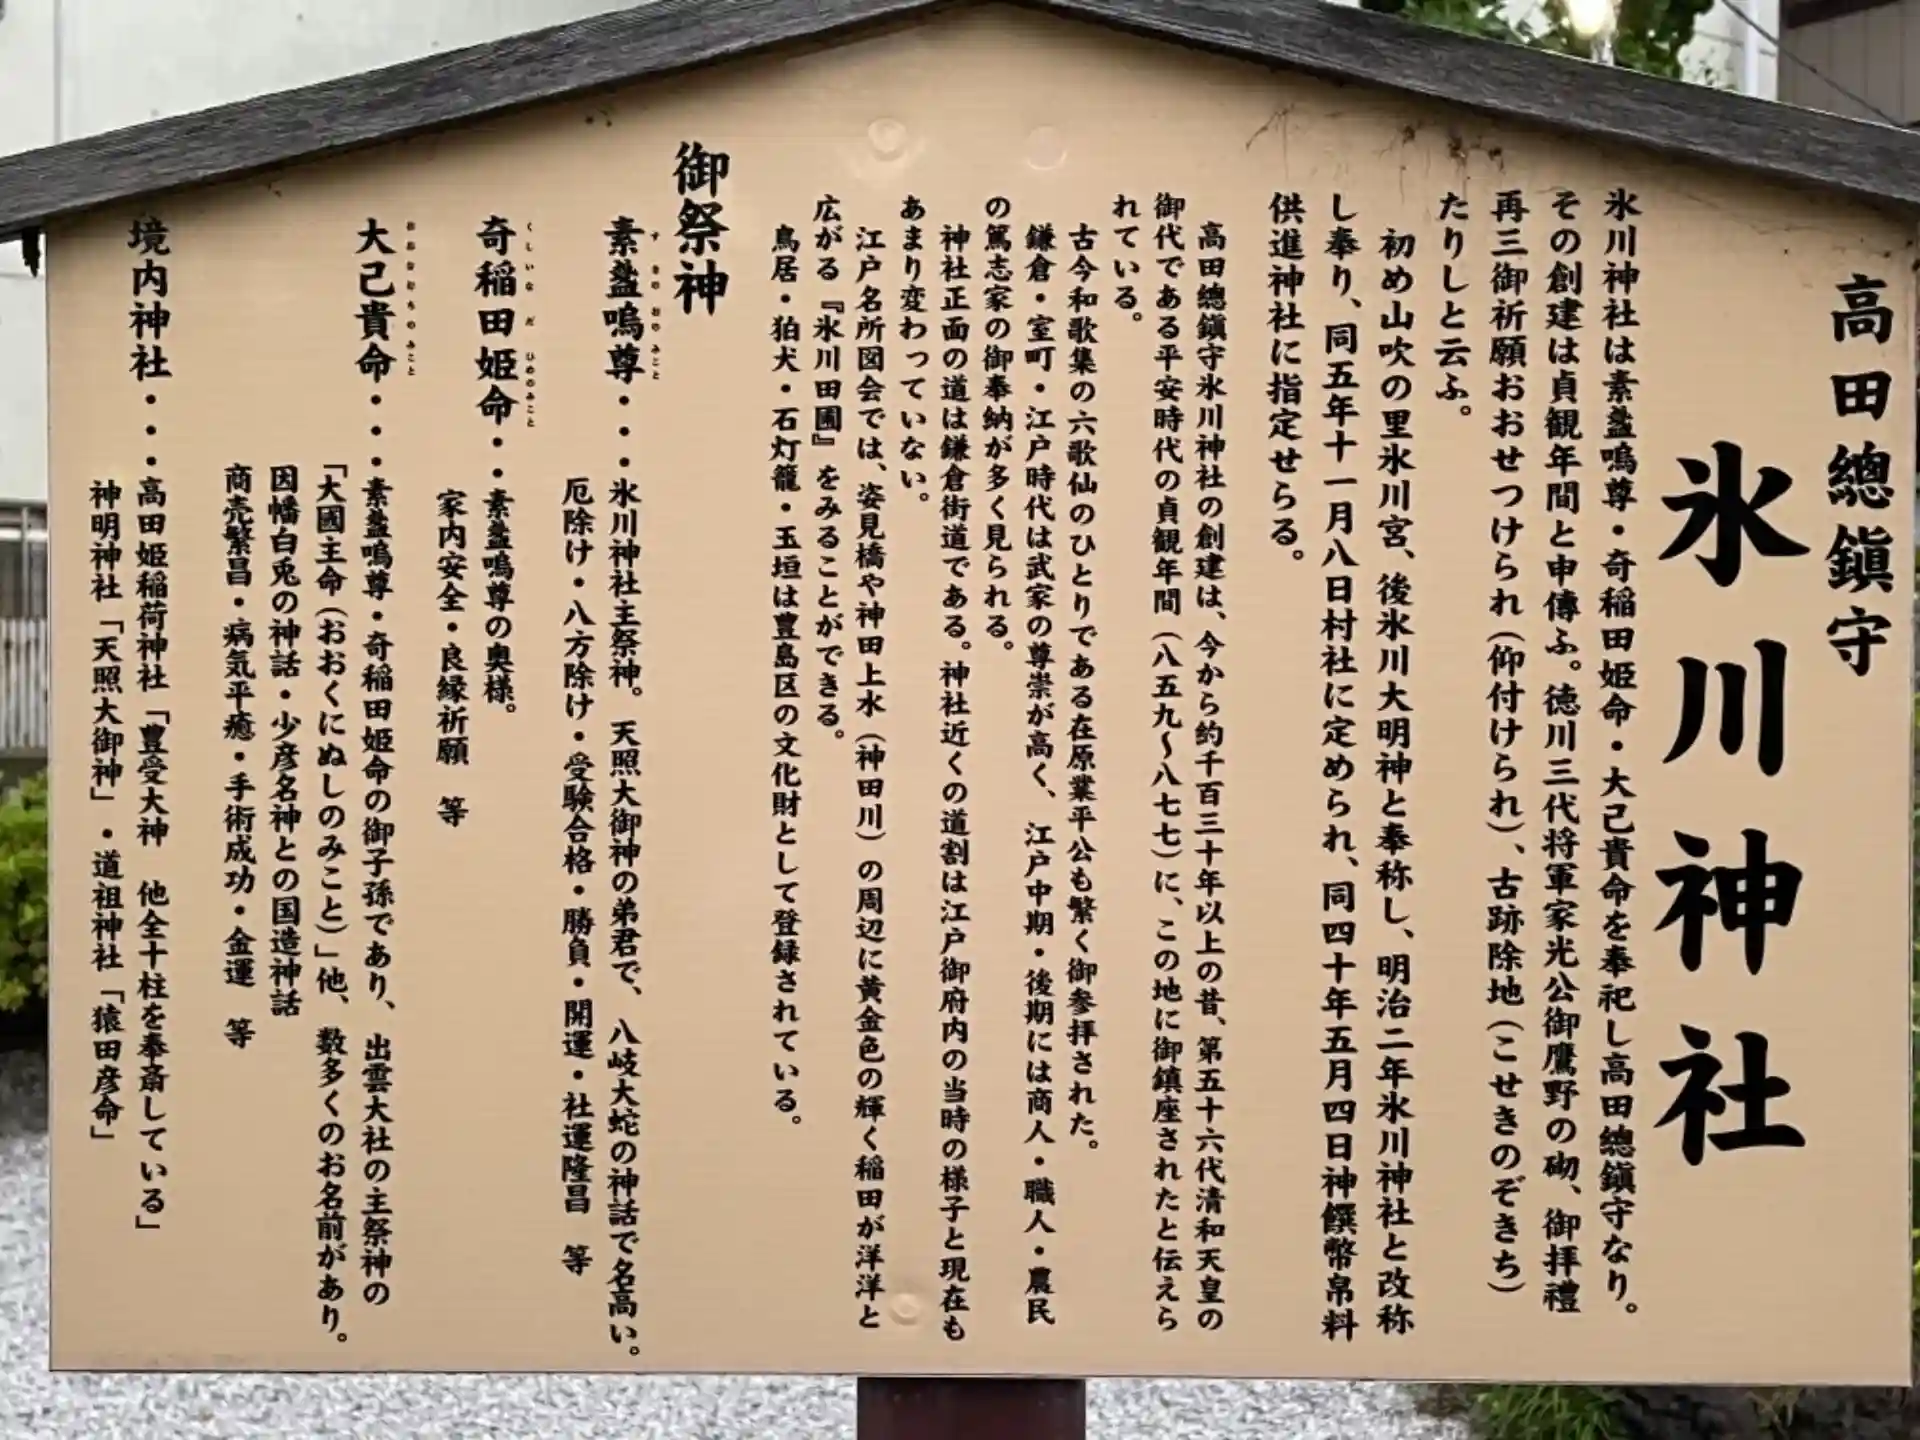 高田總鎭守
氷川神社
氷川神社は素盞嗚尊・奇稲田姫命・大己貴命を奉祀し高田總鎭守なり。
その創建は貞観年間と申傳ふ。徳川三代将軍家光公御鷹野の砌、御拝禮
再三御祈願おおせつけられ（仰付けられ）、古跡除地（こせきのぞきち）
たりしと云ふ。
初め山吹の里氷川宮、後氷川大明神と奉称し、明治二年氷川神社と改称
し奉り、同五年十一月八日村社に定められ、同四十年五月四日神饌幣帛料
供進神社に指定せらる。
高田總鎭守氷川神社の創建は、今から約千百三十年以上の昔、第五十六代清和天皇の
御代である平安時代の貞観年間（八五九〜八七七）に、この地に御鎮座されたと伝えら
れている。
古今和歌集の六歌仙のひとりである在原業平公も繁く御参拝された。
鎌倉・室町・江戸時代は武家の尊崇が高く、江戸中期・後期には商人・職人・農民
の篤志家の御奉納が多く見られる。
神社正面の道は鎌倉街道である。神社近くの道割は江戸御府内の当時の様子と現在も
あまり変わっていない。
江戸名所図会では、姿見橋や神田上水（神田川）の周辺に黄金色の輝く稲田が洋洋と
広がる『氷川田圃』をみることができる。
鳥居・狛犬・石灯籠・玉垣は豊島区の文化財として登録されている。
御祭神
素盞嗚尊・・・氷川神社主祭神。天照大御神の弟君で、八岐大蛇の神話で名高い。
すさのおのみこと
厄除け・八方除け・受験合格・勝負・開運・社運隆昌 等
奇稲田姫命・・素盞嗚尊の奥様。
くしいなだひめのみこと
家内安全・良縁祈願 等
大己貴命・・・素盞嗚尊・奇稲田姫命の御子孫であり、出雲大社の主祭神の
おおなむちのみこと
「大國主命（おおくにぬしのみこと）」他、数多くのお名前があり。
因幡白兎の神話・少彦名神との国造神話
商売繁昌・病気平癒・手術成功・金運 等
境内神社・・・高田姫稲荷神社「豊受大神 他全十柱を奉斎している」
神明神社「天照大御神」・道祖神社「猿田彦命」